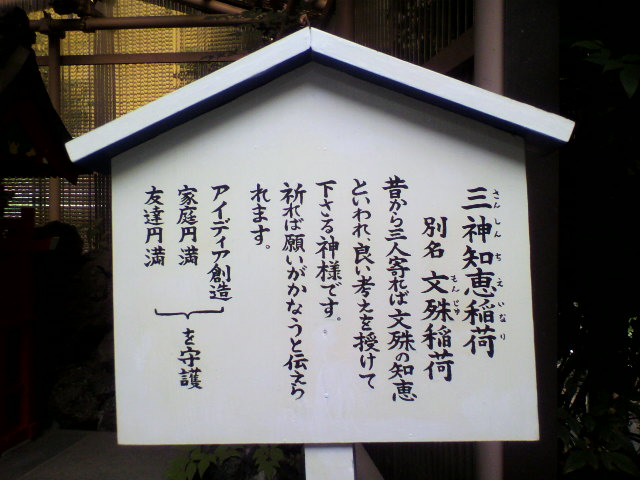 三神知恵稲荷
さんしんちえいなり
別名 文殊稲荷
もんじゅ
昔から三人寄れば文殊の知恵
といわれ良い考えを授けて
下さる神様です。
祈れば願いがかなうと伝えら
れます。
アイディア創造
家庭円満
友達円満
を守護